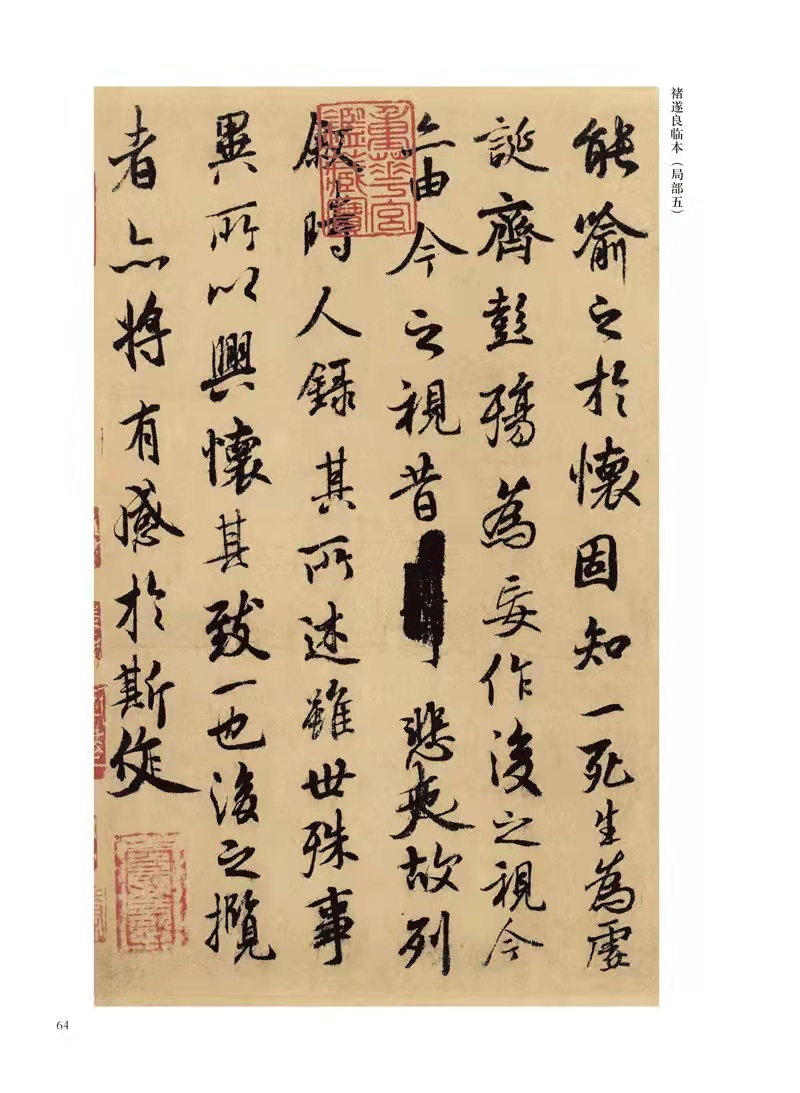 褚遂良临本（局部五）
能喻之於懷固知一死生為虛
誕齊彭殤為妄作後之視今
亦由今之視昔悲夫故列
敘時人錄其所述雖世殊事
異所以興懷其致一也後之攬
者亦將有感於斯作
重華宮
鑑藏寶
64